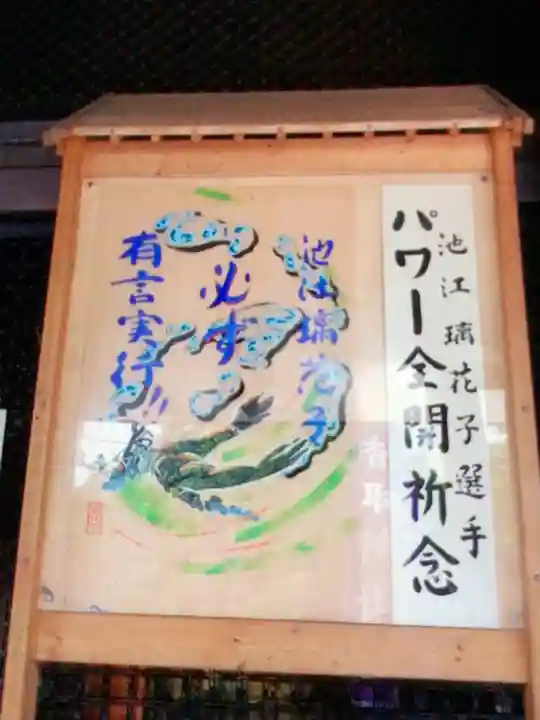 池江璃花子選手
パワー全開祈念
池江璃花子
必ず
有言実行!!